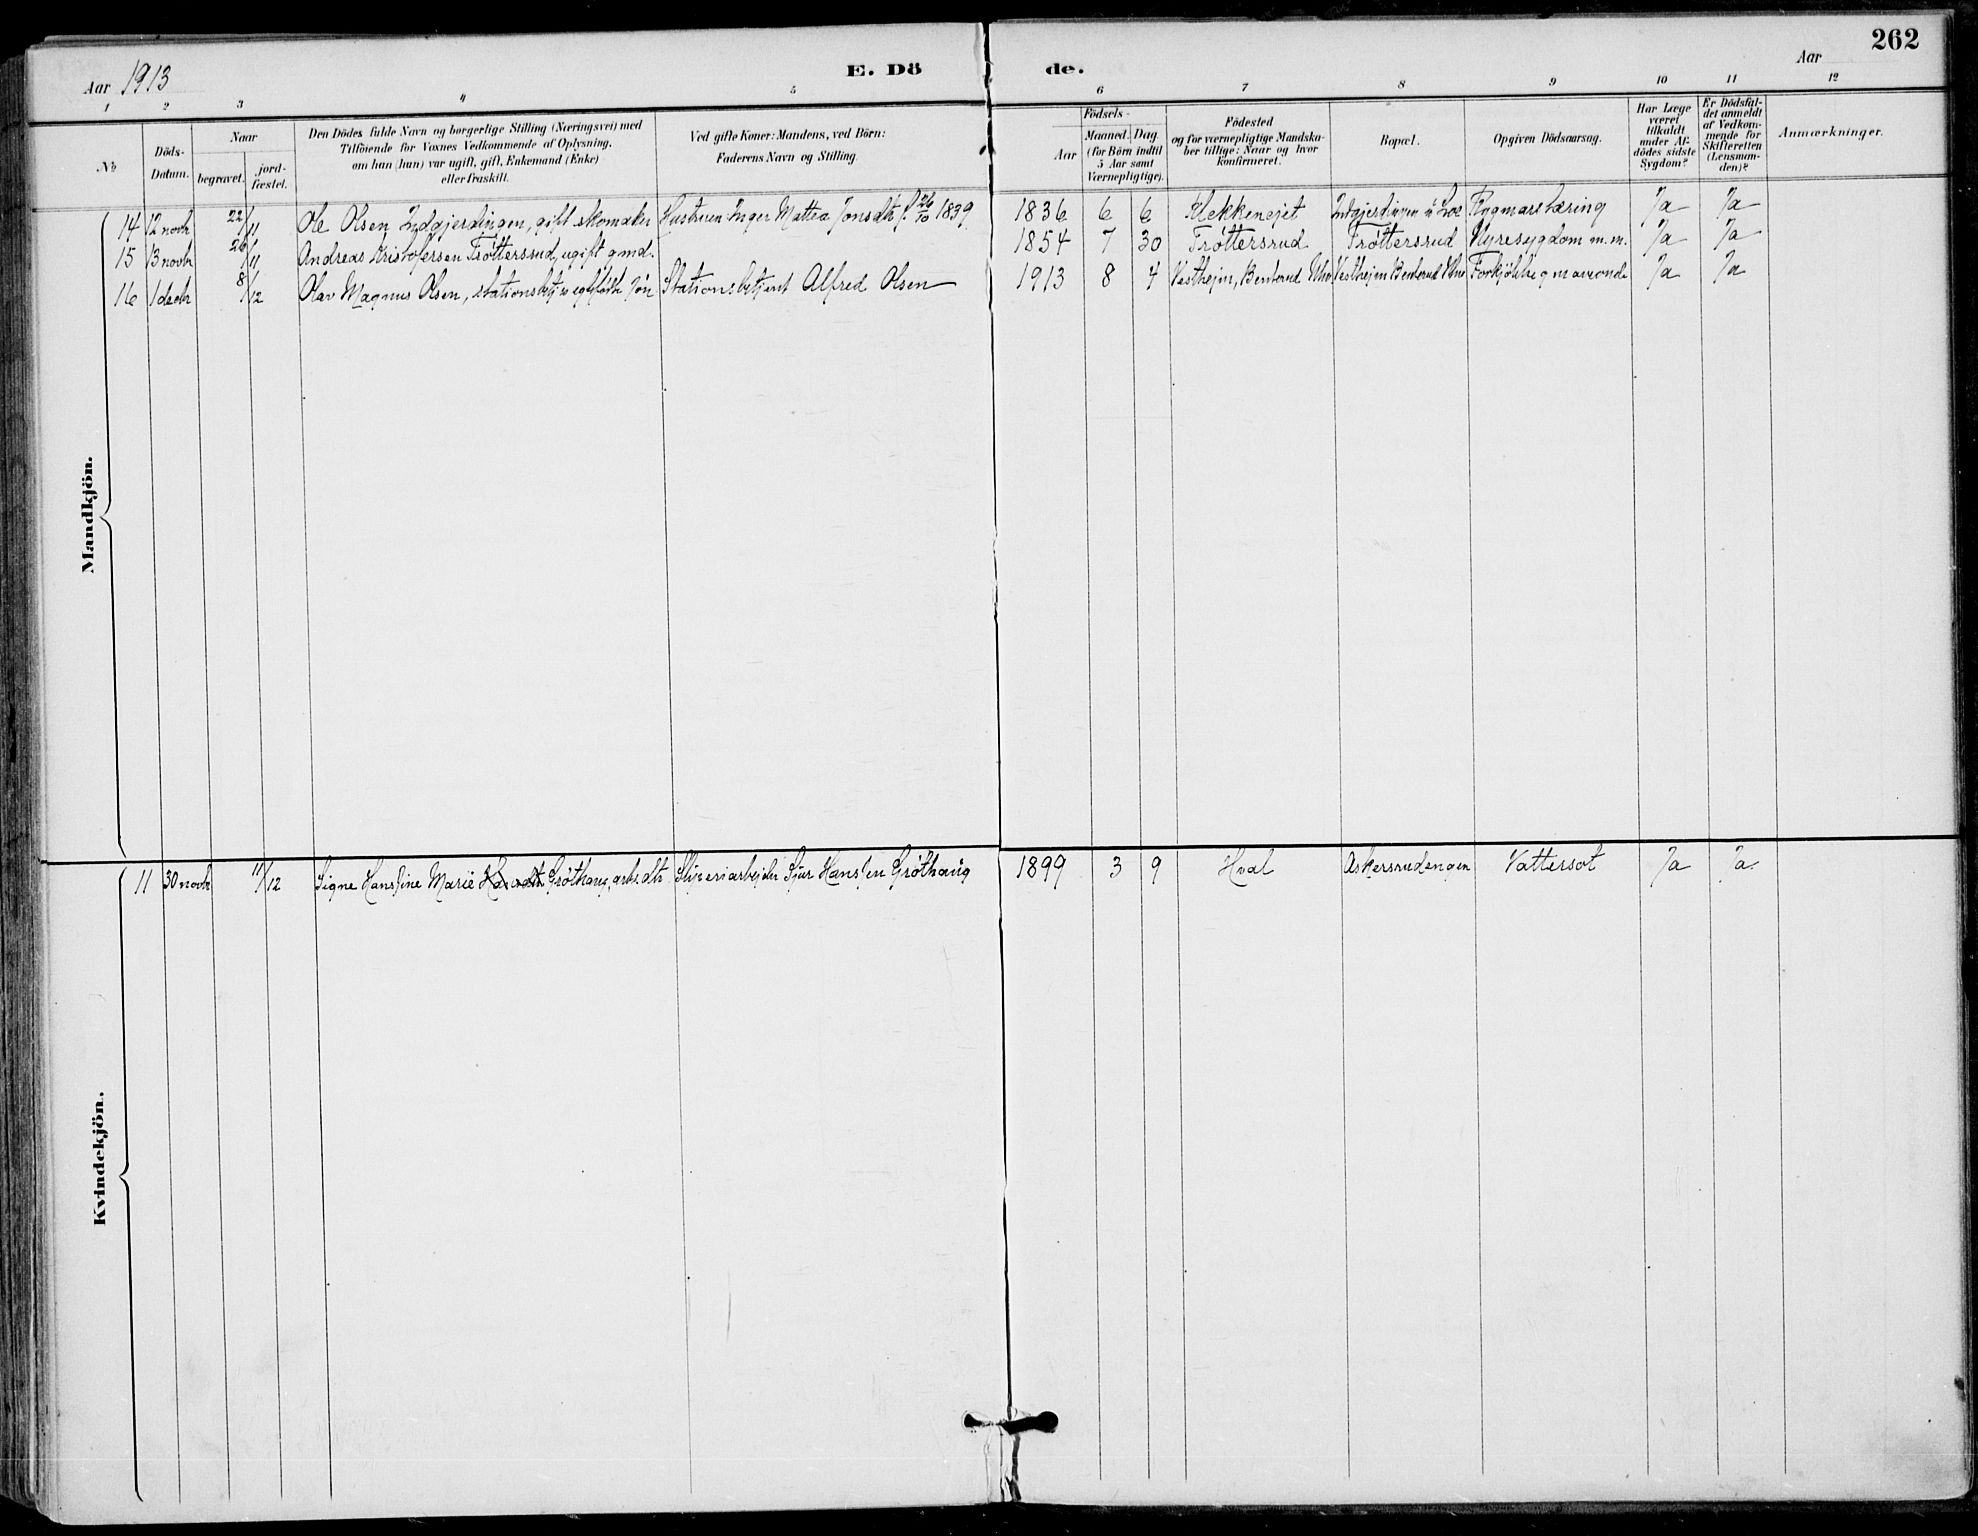 262
Aar 1913
E. Dö
de.
Aar
1 2 3 4 5 6 7 8 9 10 11 12
No
Döds-
Datum.
Naar
begravet.
jord-
fæstet.
Den Dödes fulde Navn og borgerlige Stilling (Næringsvei) med
Tilföiende for Voxnes Vedkommende af Oplysning,
om han (hun) var ugift, gift, Enkemand (Enke)
eller fraskilt.
Ved gifte Koner: Mandens, ved Börn:
Faderens Navn og Stilling.
Födsels-
Aar
Maaned. Dag.
(for Börn indtil
5 Aar samt
Værnepligtige).
Födested
og for værnepligtige Mandska-
ber tillige: Naar og hvor
konfirmeret.
Bopæl.
Opgiven Dödsaarsag.
Har Læge
været
tilkaldt
under Af-
dödes sidste
Sygdom?
Er Dödsfal-
det anmeldt
af Vedkom-
mende for
Skifteretten
(Lensman-
den)?
Anmærkninger.
Mandkjön.
14 12 novb 22/11 Ole Olsen Indgjerdingen, gift skomaker Hustruen Inger Mattea Jonsdtr f. 26/10 1839 1836 6 6 Hekkeneiet Indgjerdingen Rygmarstæring Ja Ja
15 13 novb 26/11 Andreas Kristofersen Trøttersrud, ugift gmd. 1854 7 30 Trøttersrud Trøttersrud Nyresygdom m.m. Ja Ja
16 1 decb 8/12 Olav Magnus Olsen, stationsbetj. egtefødte søn Stationsbetjent Alfred Olsen 1913 8 4 Vestheim, Benterud Vestheim Benterud Forkjölelse Ja Ja
Kvindekjön.
11 30 novb 11/12 Signe Hansine Marie Grøthaug, arb.dtr Sliperiarbejder Sjur Hansen Grøthaug 1899 3 9 Hval Askersrudengen Vattersot Ja Ja.